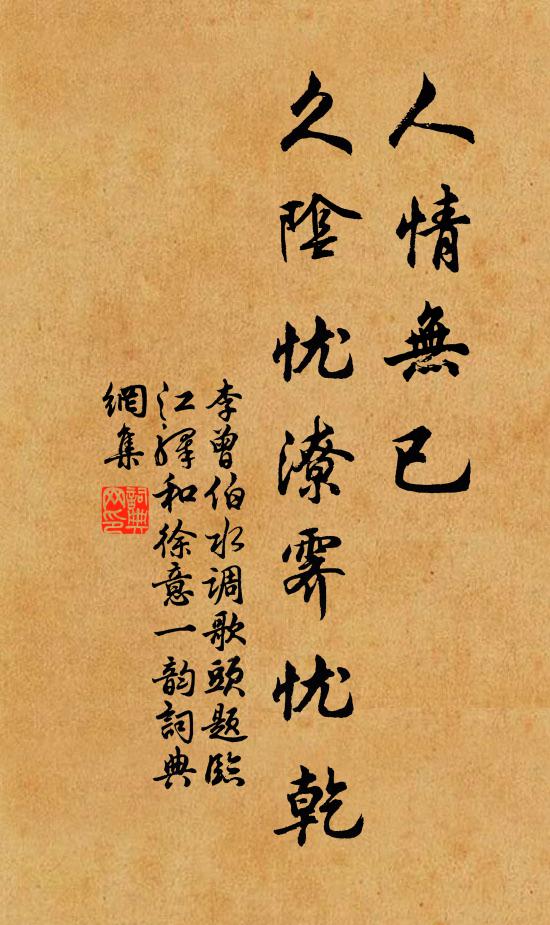 人情無已
久陰忧潦霁忧乾
李曾伯水调歌頭題臨
江驛和徐意一韵詞典
網集
詞典網印